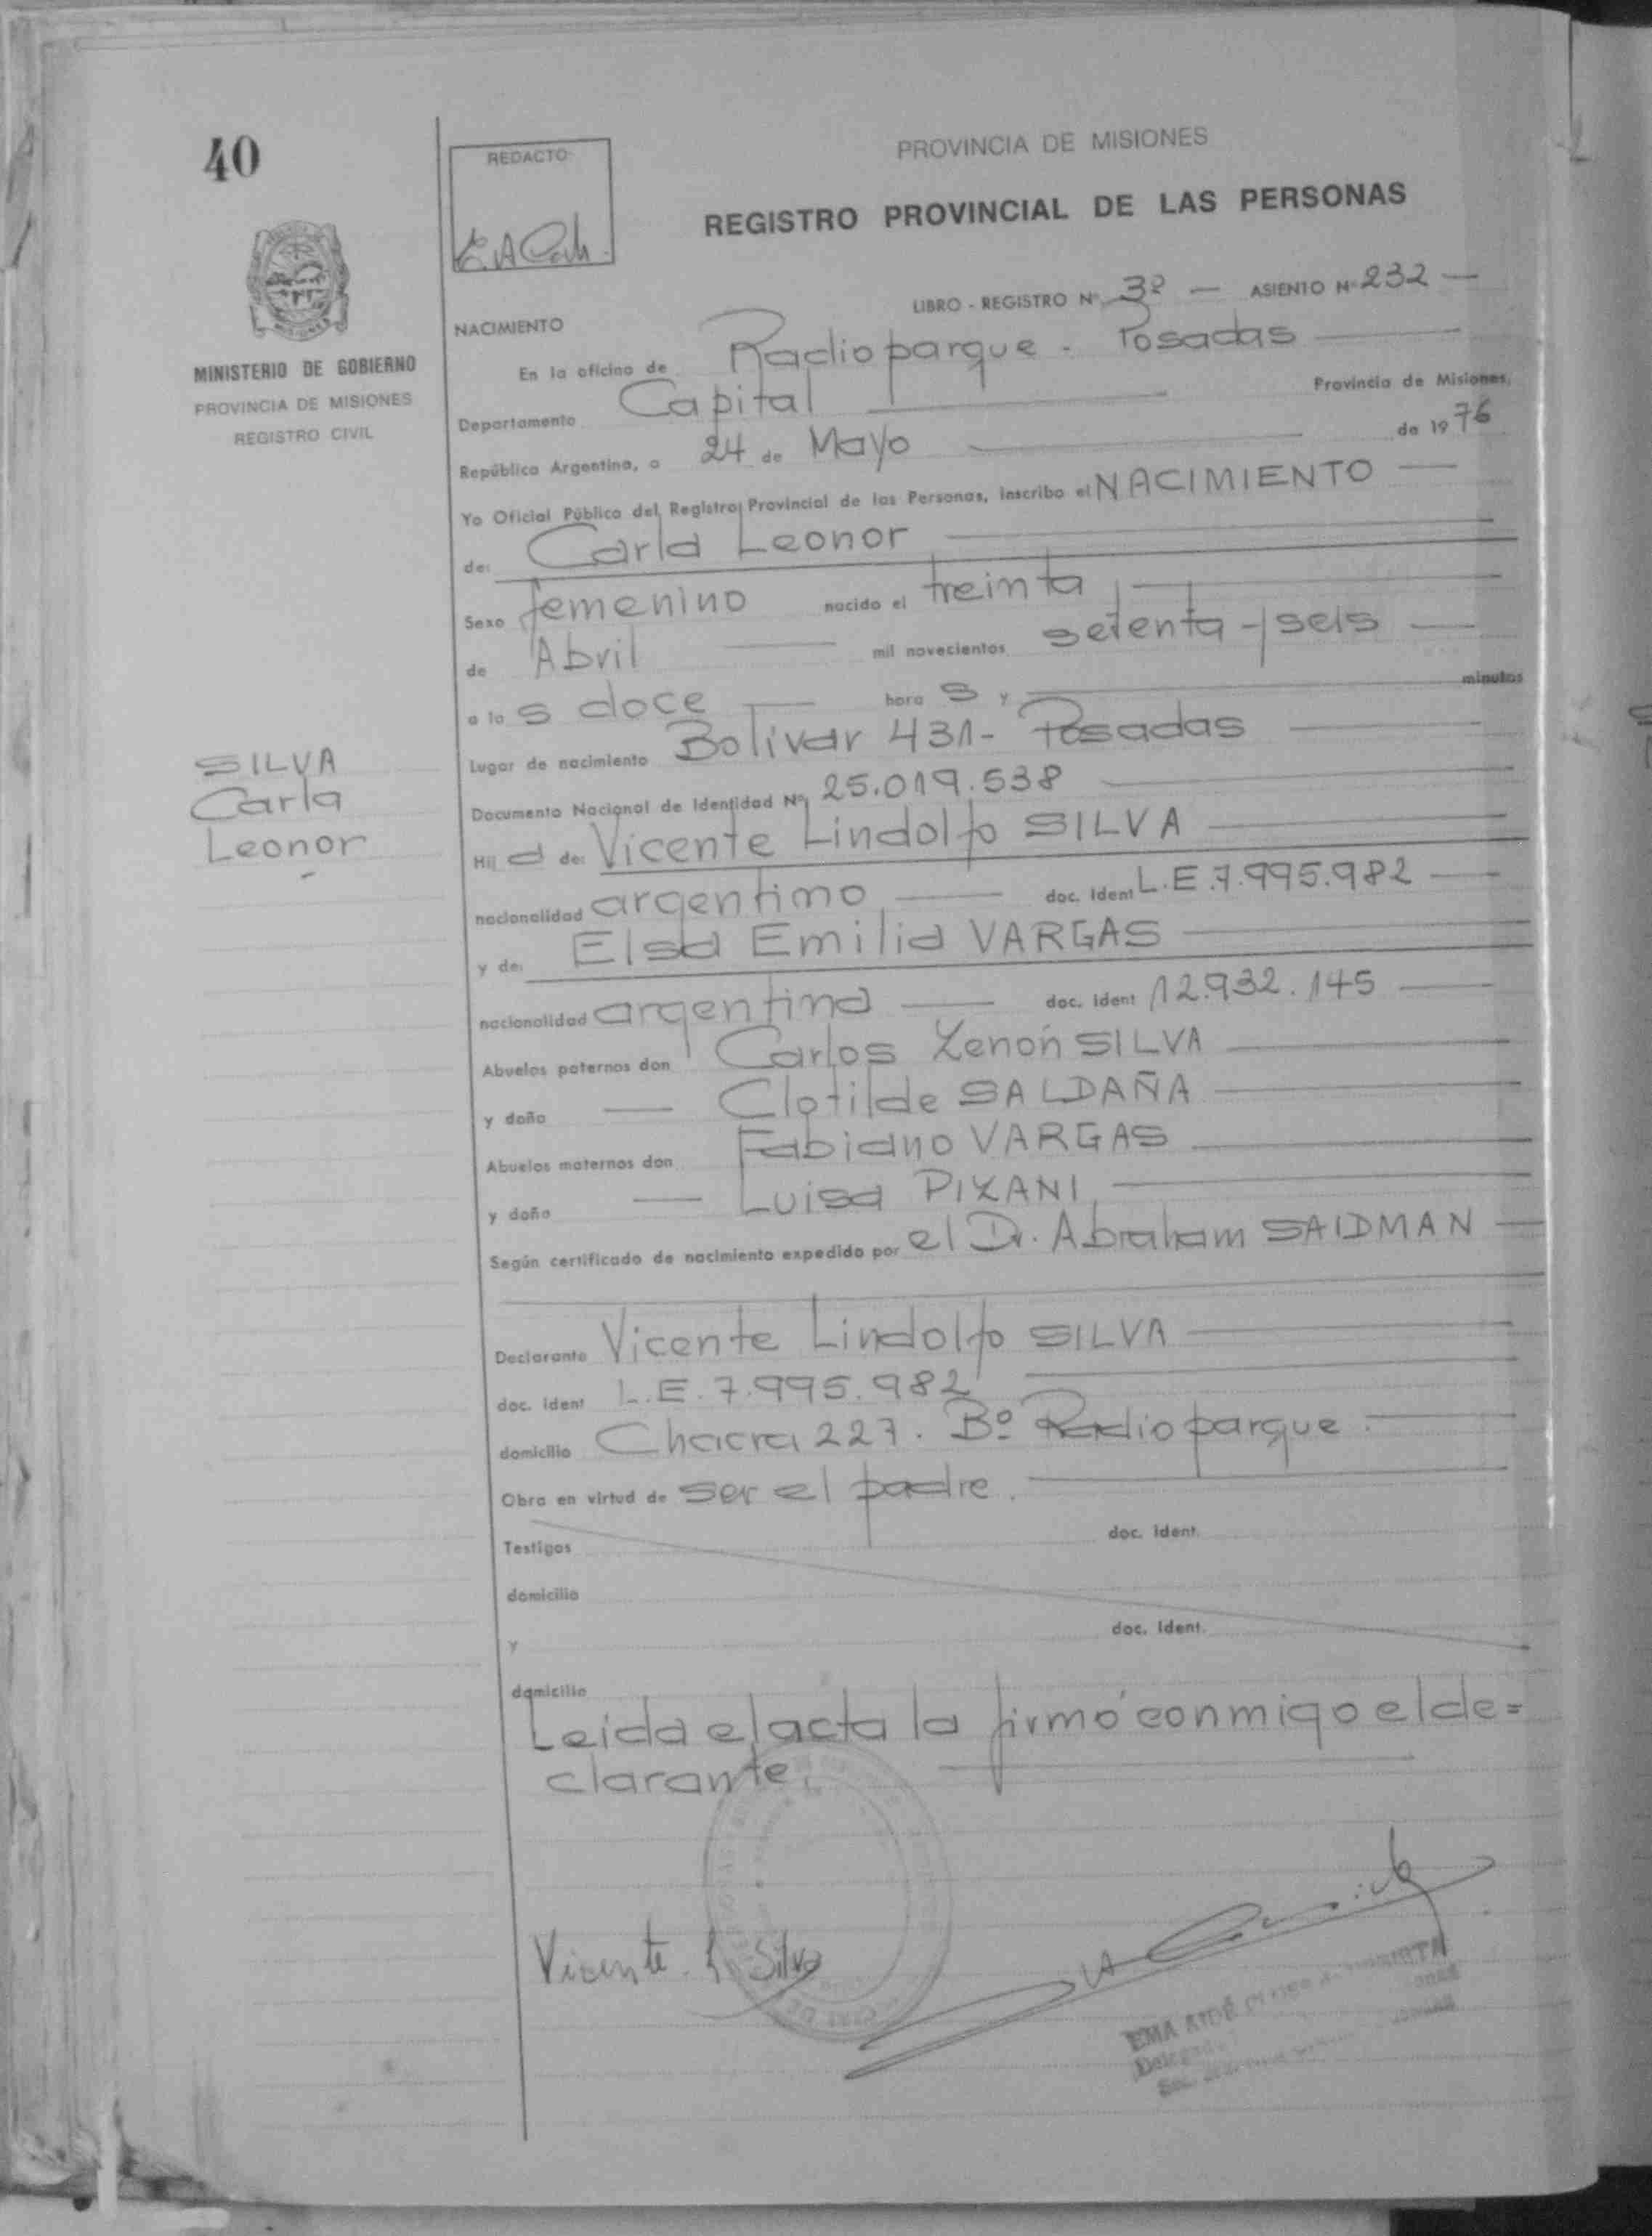 40
REDACTO
PROVINCIA DE MISIONES
REGISTRO PROVINCIAL DE LAS PERSONAS
LIBRO - REGISTRO Nº 3º — ASIENTO Nº 232 —
NACIMIENTO
En la oficina de Radioparque - Posadas
MINISTERIO DE GOBIERNO
PROVINCIA DE MISIONES
REGISTRO CIVIL
Departamento Capital Provincia de Misiones,
República Argentina, a 24 de Mayo de 1976
Yo Oficial Público del Registro Provincial de las Personas, inscribo el NACIMIENTO
de: Carla Leonor
Sexo femenino nacido el treinta
de Abril mil novecientos setenta y seis
a las doce horas y minutos
Lugar de nacimiento Bolivar 431 - Posadas
SILVA
Carla
Leonor
Documento Nacional de Identidad Nº 25.019.538
Hija de: Vicente Lindolfo SILVA
nacionalidad argentino doc. ident L.E.7.995.982
y de: Elsa Emilia VARGAS
nacionalidad argentina doc. ident 12.932.145
Abuelos paternos don Carlos Zenón SILVA
y doña Clotilde SALDAÑA
Abuelos maternos don Fabiano VARGAS
y doña Luisa PIZANI
Según certificado de nacimiento expedido por el Dr. Abraham SAIDMAN
Declarante Vicente Lindolfo SILVA
doc. ident L.E. 7.995.982
domicilio Chacra 227. Bº Radioparque.
Obra en virtud de ser el padre.
Testigos doc. ident.
domicilio
y doc. ident.
domicilio
Leida el acta la firmó conmigo el de=
clarante.
Vicente L Silva
EMA AIDÉ